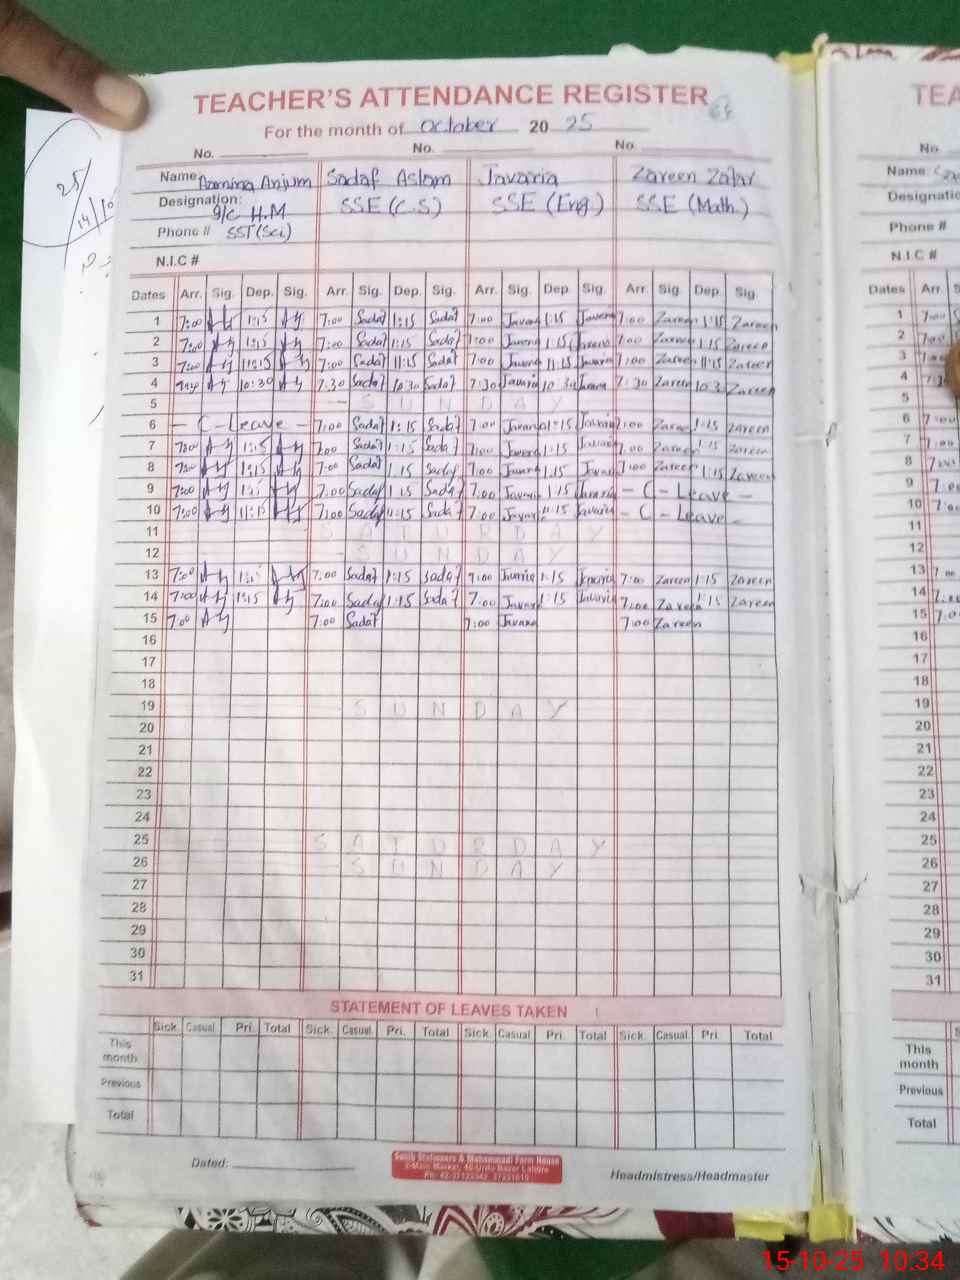 TEACHER'S ATTENDANCE REGISTER
For the month of October 20 25
No. No. No.
Name Aamina Anjum Sadaf Aslam Javaria Zareen Zafar
Designation: I/c H.M SSE (C.S) SSE (Eng.) SSE (Math.)
Phone # SST (Sci)
N.I.C #
Dates Arr. Sig. Dep. Sig. Arr. Sig. Dep. Sig. Arr. Sig. Dep. Sig. Arr. Sig. Dep. Sig.
1 7:00 1:15 7:00 Sadaf 1:15 Sadaf 7:00 Javaria 1:15 Javaria 7:00 Zareen 1:15 Zareen
2 7:00 1:15 7:00 Sadaf 1:15 Sadaf 7:00 Javaria 1:15 Javaria 7:00 Zareen 1:15 Zareen
3 7:00 11:15 7:00 Sadaf 11:15 Sadaf 7:00 Javaria 11:15 Javaria 7:00 Zareen 11:15 Zareen
4 10:30 7:30 Sadaf 10:30 Sadaf 7:30 Javaria 10:30 Javaria 7:30 Zareen 10:30 Zareen
5 - S U N D A Y
6 - C - Leave - 7:00 Sadaf 1:15 Sadaf 7:00 Javaria 1:15 Javaria 7:00 Zareen 1:15 Zareen
7 7:00 1:15 7:00 Sadaf 1:15 Sadaf 7:00 Javaria 1:15 Javaria 7:00 Zareen 1:15 Zareen
8 7:00 1:15 7:00 Sadaf 1:15 Sadaf 7:00 Javaria 1:15 Javaria 7:00 Zareen 1:15 Zareen
9 7:00 1:15 7:00 Sadaf 1:15 Sadaf 7:00 Javaria 1:15 Javaria - C - Leave -
10 7:00 11:15 7:00 Sadaf 11:15 Sadaf 7:00 Javaria 11:15 Javaria - C - Leave -
11 S A T U R D A Y
12 - S U N D A Y
13 7:00 1:15 7:00 Sadaf 1:15 Sadaf 7:00 Javaria 1:15 Javaria 7:00 Zareen 1:15 Zareen
14 7:00 1:15 7:00 Sadaf 1:15 Sadaf 7:00 Javaria 1:15 Javaria 7:00 Zareen 1:15 Zareen
15 7:00 7:00 Sadaf 7:00 Javaria 7:00 Zareen
16
17
18
19 - S U N D A Y
20
21
22
23
24
25 S A T U R D A Y
26 - S U N D A Y
27
28
29
30
31
STATEMENT OF LEAVES TAKEN
Sick. Casual Pri. Total Sick. Casual. Pri. Total Sick. Casual Pri. Total Sick. Casual Pri. Total
This month
Previous
Total
Dated: Headmistress/Headmaster
TEA
No.
Name:
Designatio
Phone #
N.I.C #
Dates Arr S
1 7:00
2
3
4
5
6 7:00
7
8
9
10
11
12
13
14
15
16
17
18
19
20
21
22
23
24
25
26
27
28
29
30
31
This month
Previous
Total
25/
14/10
15-10-25 10:34